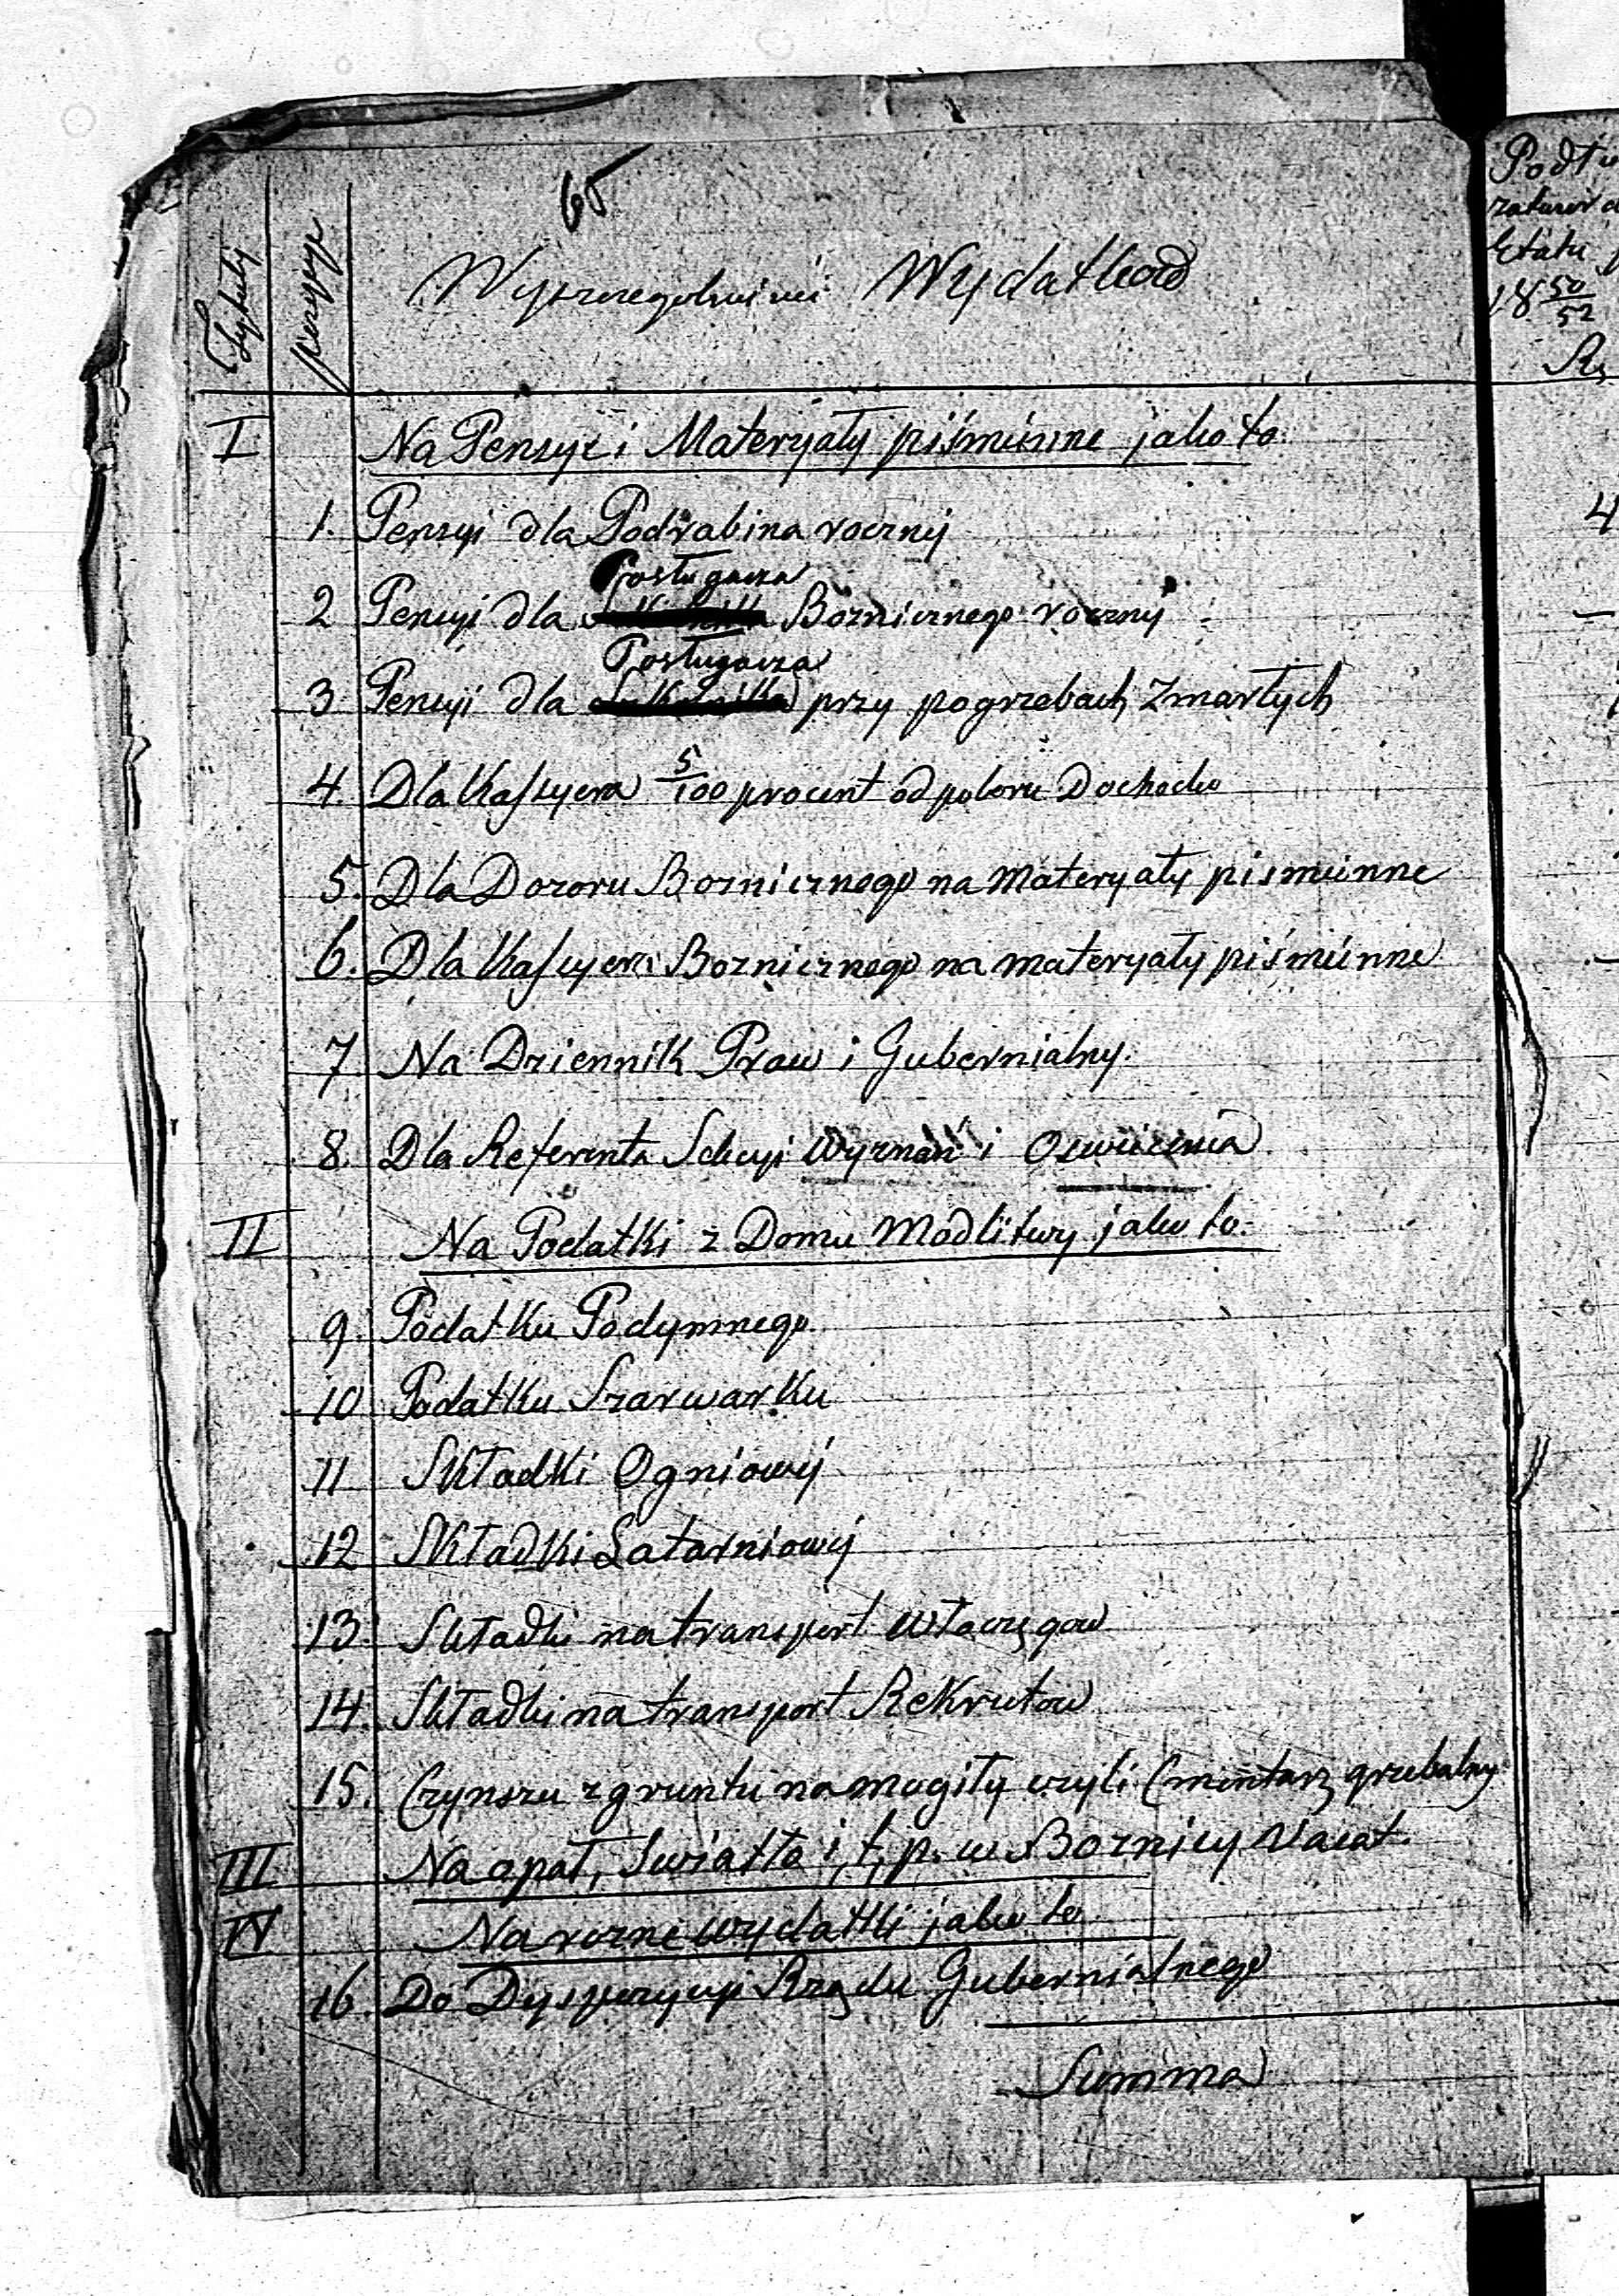 65
Tytuły
pozycye
Wyszczegolnienie Wydatkow
Podł
Etatu
18 50/52
Rs
I Na Pensye i Materyały piśmienne jako to
1. Pensyi dla Podrabina roczny
Posługacza
2 Pensyi dla Boznicznego roczny
Posługacza
3 Pensyi dla Szkolnika przy pogrzebach Zmarłych
4. Dla Kassyera 5/100 procent od poboru Dochodu
5. Dla Dozoru Boznicznego na Materyały pismienne
6. Dla Kassyera Boznicznego na materyały piśmienne
7 Na Dziennik Praw i Gubernialny.
8. Dla Referenta Sekcyi Wyznań i Oswiecenia
II Na Podatki z Domu Modlitwy jako to.
9. Podatku Podymnego
10 Podatku Szarwarku
11 Składki Ogniowy
12 Składki Latarniowy
13. Składki na transport włoczęgow
14. Składki na transport Rekrutow
15. Czynszu z gruntu na mogiły czyli Cmentarz grzebalny
III Na opał, Swiatło i, t, p. w Boznicy Vacat.
IV Na rozne wydatki jako to
16. Do Dyspozycyi Rządu Gubernialnego
Summa